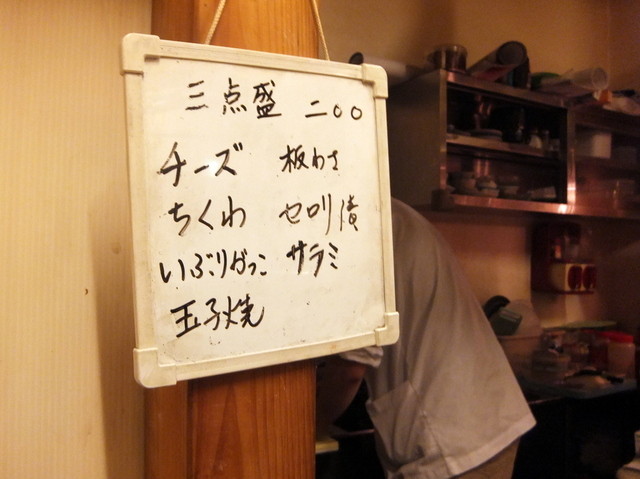 三点盛 二〇〇
チーズ 板わさ
ちくわ セロリ漬
いぶりがっこ サラミ
玉子焼